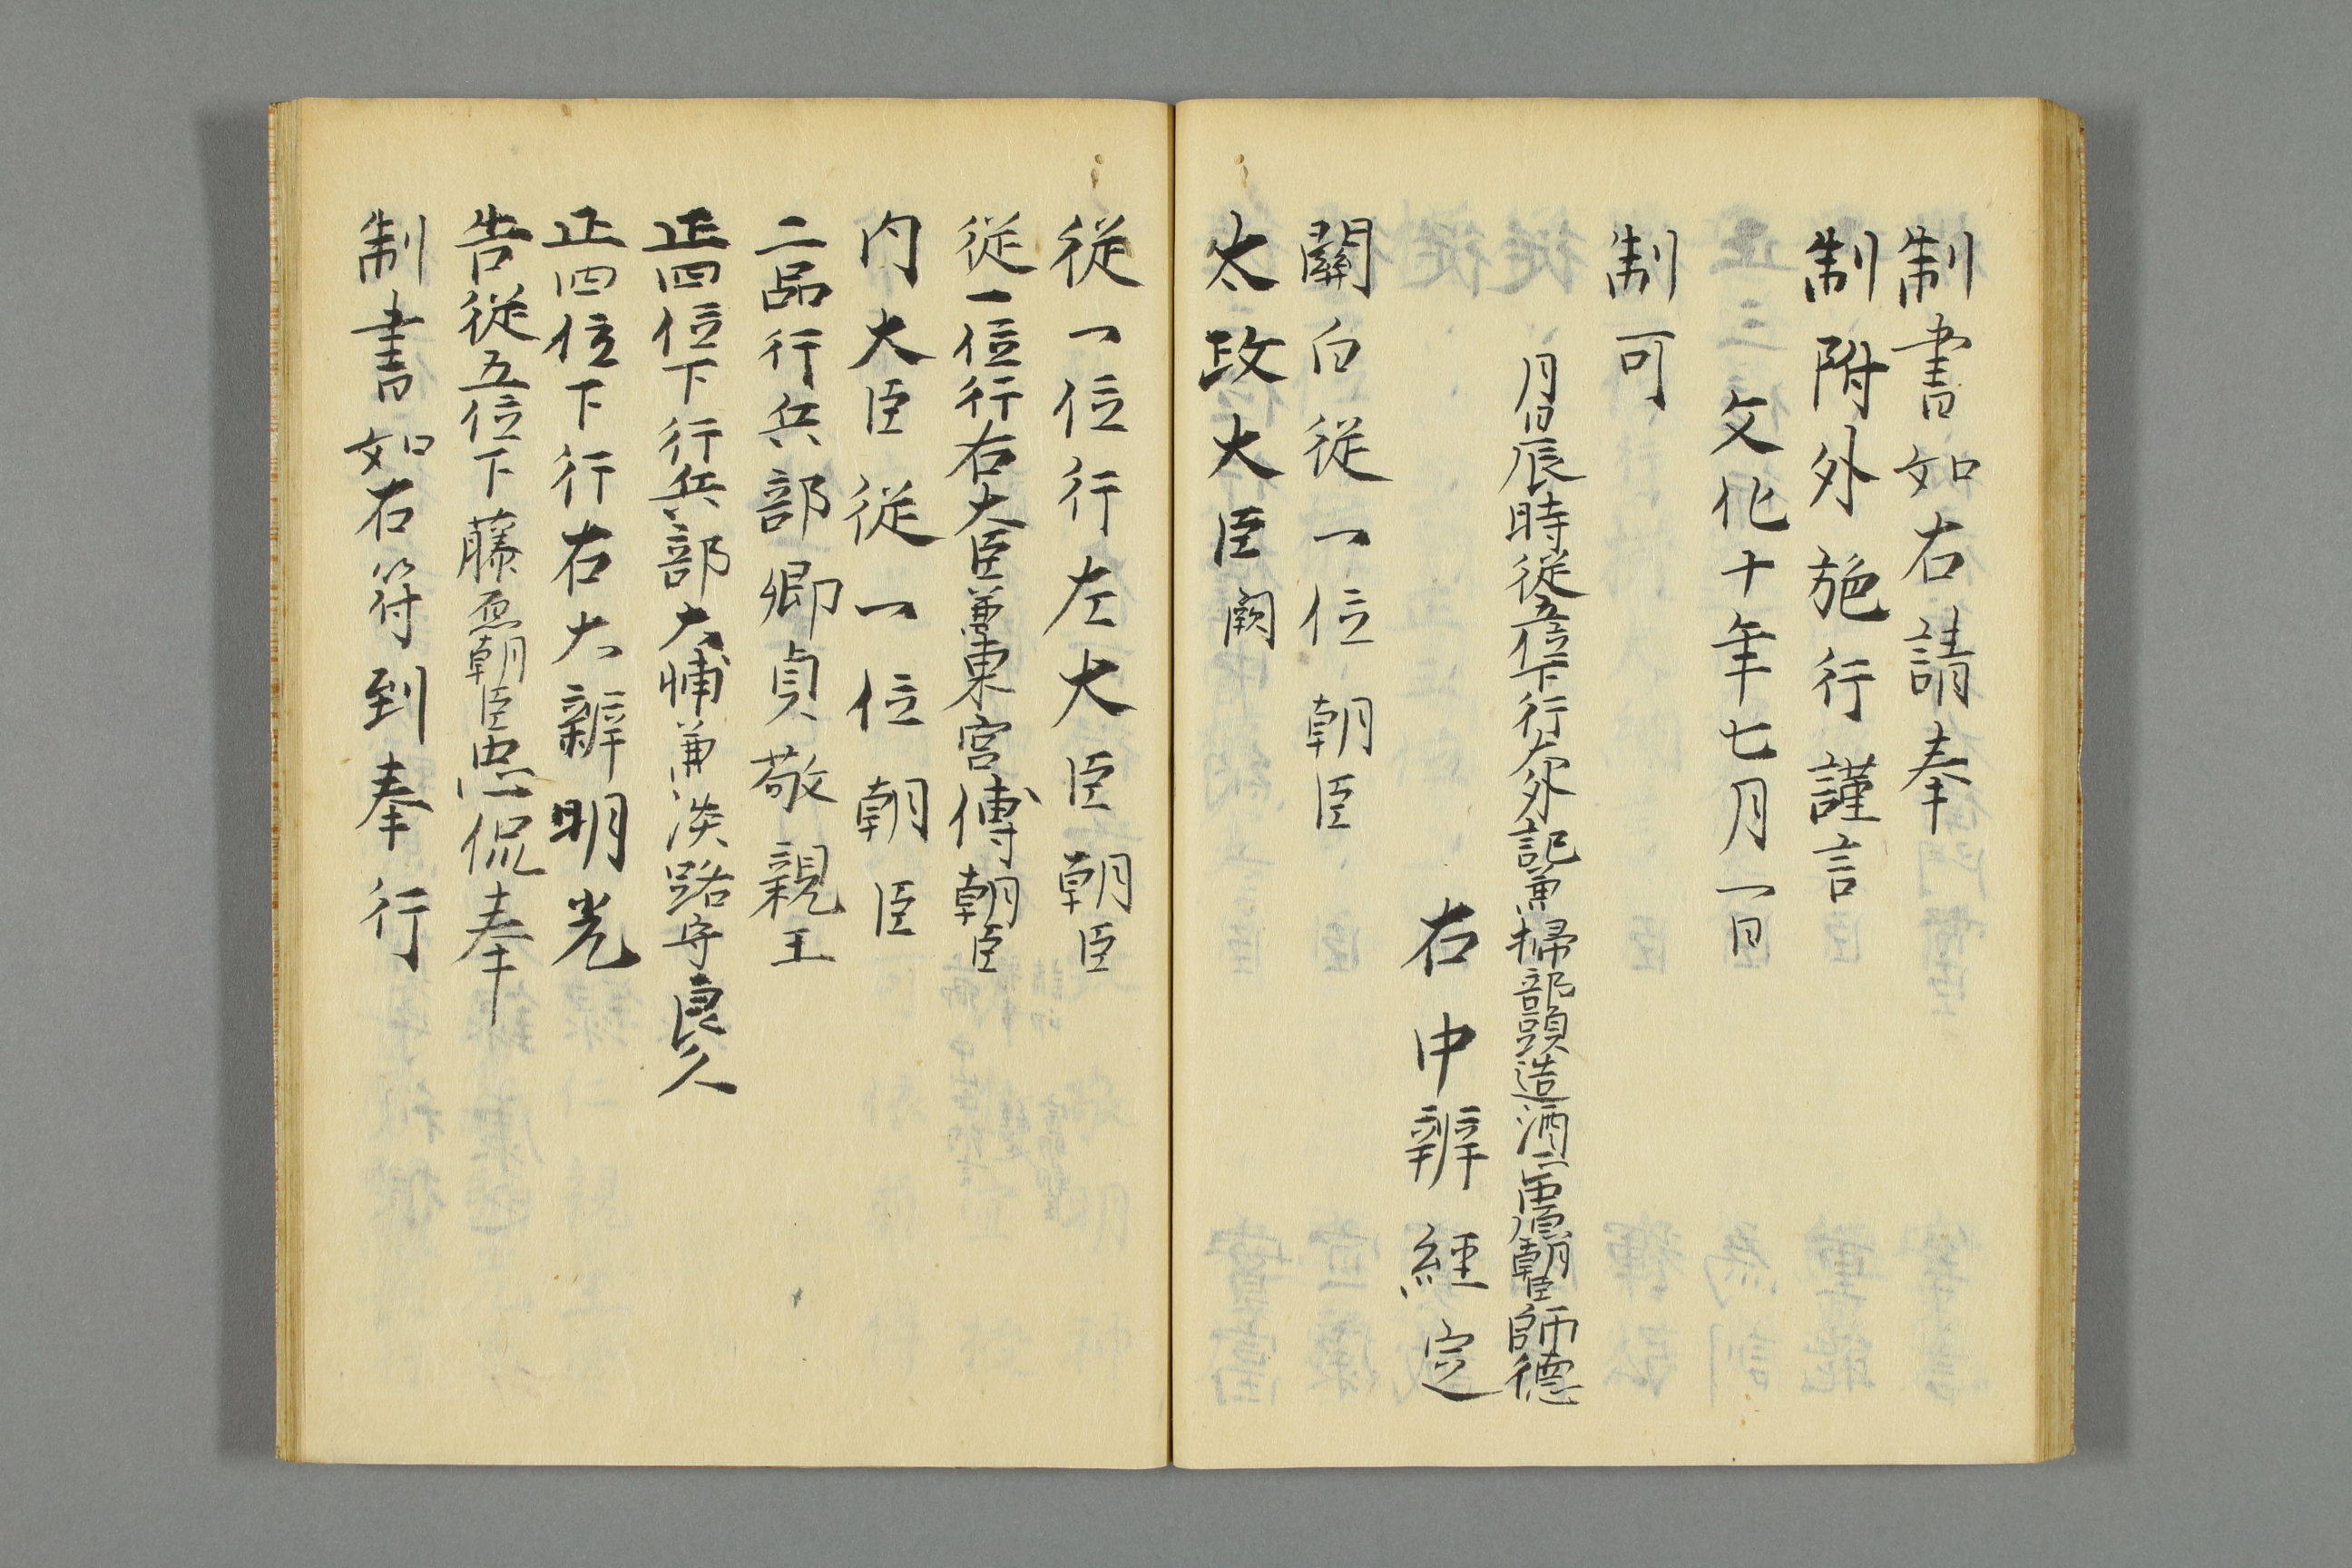 制書如右請奉
制附外施行謹言
文化十年七月一日
制可
月日辰時従五位下行大外記兼掃部頭造酒正中原朝臣師徳
右中辨経定
關白従一位朝臣
太政大臣闕
従一位行左大臣朝臣
従一位行右大臣兼東宮傅朝臣
内大臣従一位朝臣
二品行兵部卿貞敬親王
正四位下行兵部大輔兼淡路守良久
正四位下行右大辨明光
告従五位下藤原朝臣忠侃奉
制書如右符到奉行